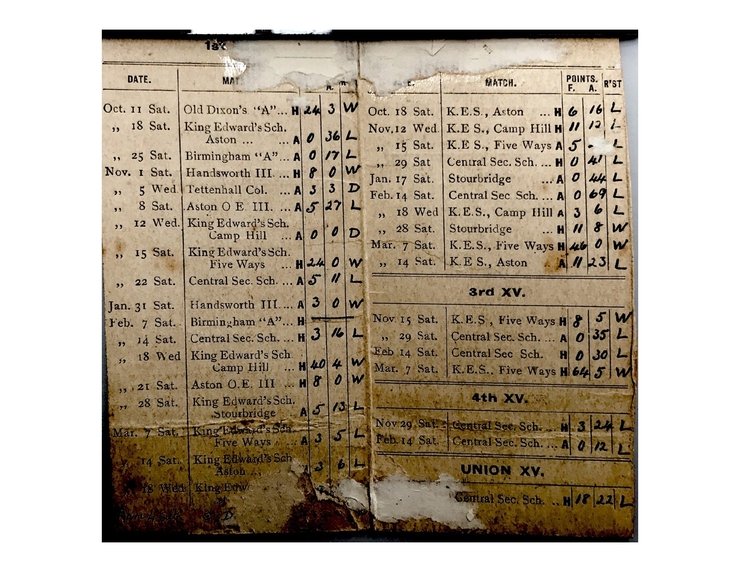 1st
DATE. MA
A.
Oct. 11 Sat. Old Dixon's "A"... H 24 3 W
„ 18 Sat. King Edward's Sch.
Aston ... ... A 0 36 L
„ 25 Sat. Birmingham "A"... A 0 17 L
Nov. 1 Sat. Handsworth III. ... H 8 0 W
„ 5 Wed. Tettenhall Col. ... A 3 3 D
„ 8 Sat. Aston O E. III. ... A 5 27 L
„ 12 Wed. King Edward's Sch.
Camp Hill ... A 0 0 D
„ 15 Sat. King Edward's Sch.
Five Ways ... H 24 0 W
„ 22 Sat. Central Sec. Sch. ... A 5 11 L
Jan. 31 Sat. Handsworth III. ... A 3 0 W
Feb. 7 Sat. Birmingham "A"... H
„ 14 Sat. Central Sec. Sch. ... H 3 16 L
„ 18 Wed King Edward's Sch
Camp Hill ... H 40 4 W
„ 21 Sat. Aston O.E. III ... H 8 0 W
„ 28 Sat. King Edward's Sch.
Stourbridge ... A 5 13 L
Mar. 7 Sat. King Edward's Sch.
Five Ways ... A 3 5 L
„ 14 Sat. King Edward's Sch.
Aston ... 3 6 L
„ 18 Wed. King Edw
E. MATCH. POINTS. R'ST
F. A.
Oct. 18 Sat. K.E.S., Aston ... H 6 16 L
Nov. 12 Wed. K.E.S., Camp Hill H 11 12 L
„ 15 Sat K.E.S., Five Ways A 5 L
„ 29 Sat Central Sec. Sch. ... H 0 41 L
Jan. 17 Sat. Stourbridge ... A 0 44 L
Feb. 14 Sat. Central Sec. Sch. ... A 0 69 L
„ 18 Wed K.E.S., Camp Hill A 3 6 L
„ 28 Sat. Stourbridge ... H 11 8 W
Mar. 7 Sat. K.E.S., Five Ways H 46 0 W
„ 14 Sat. K.E S., Aston ... A 11 23 L
3rd XV.
Nov 15 Sat. K.E.S , Five Ways H 8 5 W
„ 29 Sat. Central Sec. Sch. ... A 0 35 L
Feb 14 Sat. Central Sec. Sch. ... H 0 30 L
Mar. 7 Sat. K.E.S.. Five Ways H 64 5 W
4th XV.
Nov 29 Sat. Central Sec. Sch. ... H 3 24 L
Feb. 14 Sat. Central Sec. Sch. ... A 0 12 L
UNION XV.
Central Sec. Sch. ... H 18 22 L